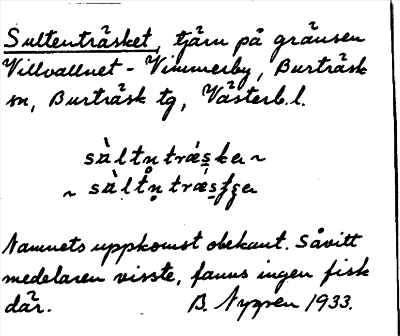 Sultenträsket, tjärn på gränsen
Villvallnet - Vimmerby, Burträsk
sn, Burträsk tg, Västerb. l.
sàltn̥träs̱ka ~
~ sàltn̥träs̱ʃʒa
Namnets uppkomst obekant. Såvitt
medelaren visste, fanns ingen fisk
där. B. Nygren 1933.